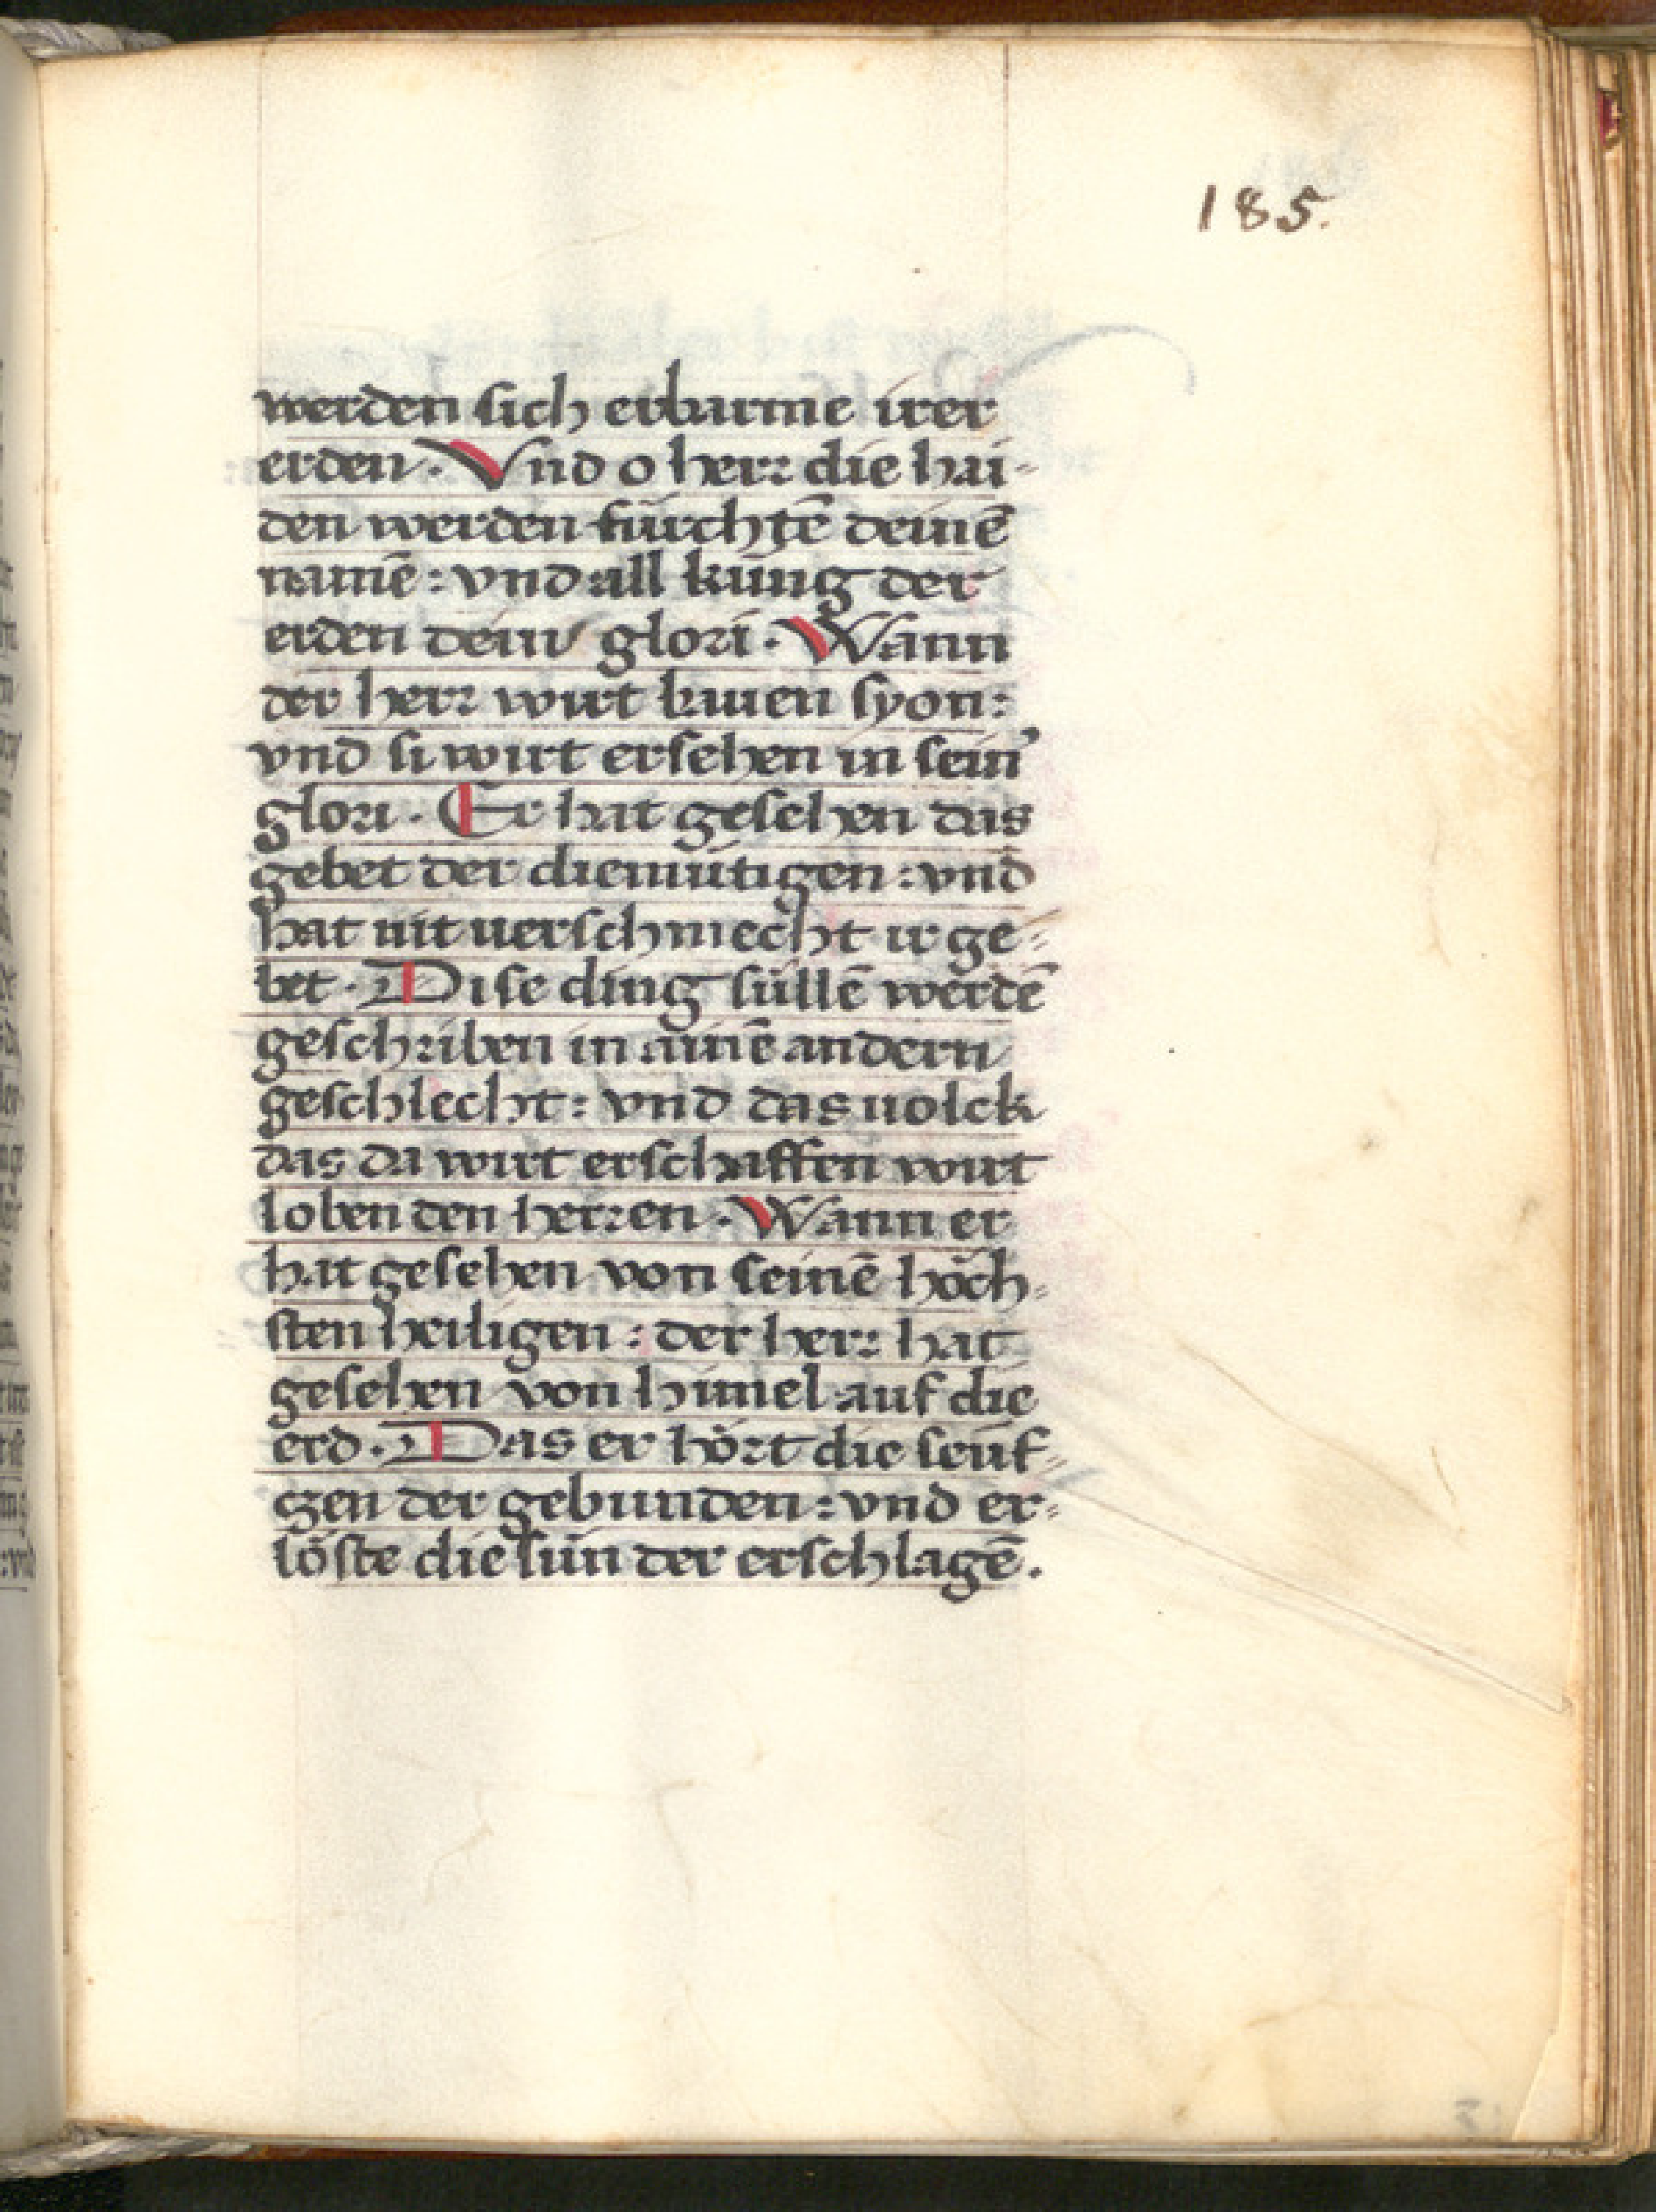 185.
werden sich erbarme irer
erden. Vnd o herr die hai-
den werden fürchtē deinē
namē: vnd all küng der
erden dein glori. Wann
der herr wirt bauen syon:
vnd si wirt ersehen in sein’
glori. Er hat gesehen das
gebet der diemütigen: vnd
hat nit uerschmecht ir ge-
bet. Dise ding süllē werdē
geschriben in ainē andern
geschlecht: vnd das uolck
das da wirt erschaffen wirt
loben den herren. Wann er
hat gesehen von seinē höch-
sten heiligen: der herr hat
gesehen von himel auf die
erd. Das er hört die seuf-
zen der gebunden: vnd er-
löste die sün der erschlagē.